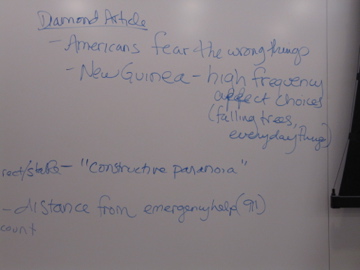 Diamond Article
- Americans fear the wrong things
- New Guinea - high frequency
affect choices
(falling trees,
everyday things)
- "Constructive paranoia"
- distance from emergency help (911)
count